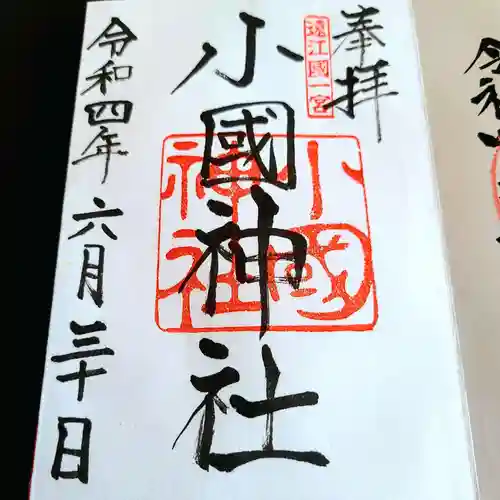 奉拝
遠江國一宮
小國神社
小國神社
令和四年 六月三十日